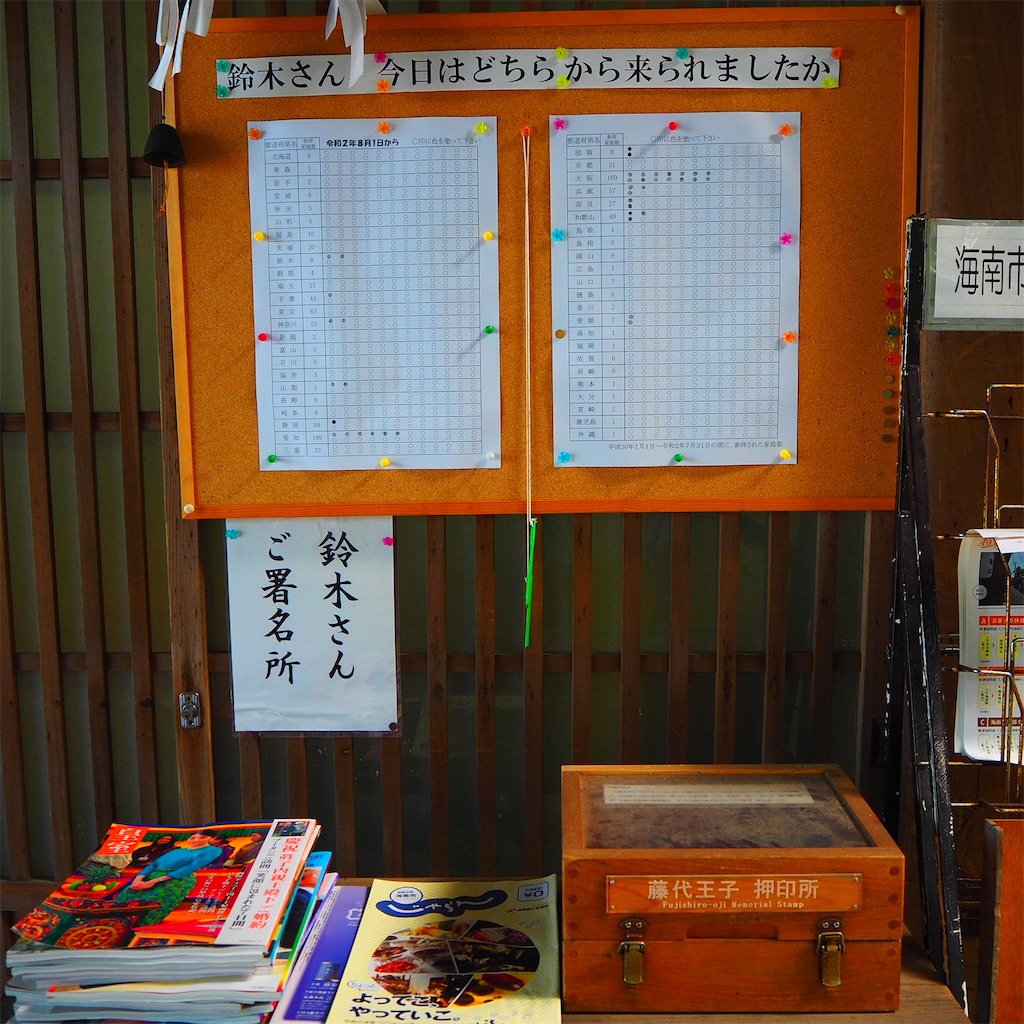 鈴木さん 今日はどちらから来られましたか
都道府県名 参拝家庭数 令和2年8月1日から ○印に色を塗って下さい
北海道 9
青森 1
岩手 2
宮城 8
秋田 5
山形 6
福島 10
茨城 20
栃木 8
群馬 4
埼玉 27
千葉 43
東京 83
神奈川 58
新潟 2
富山 0
石川 5
福井 3
山梨 1
長野 6
岐阜 8
静岡 50
愛知 109
三重 33
都道府県名 参拝家庭数 ○印に色を塗って下さい
滋賀 8
京都 31
大阪 169
兵庫 57
奈良 27
和歌山 40
鳥取 1
島根 0
岡山 8
広島 7
山口 3
徳島 0
香川 2
愛媛 7
高知 1
福岡 1
佐賀 0
長崎 0
熊本 1
大分 1
宮崎 2
鹿児島 1
沖縄 1
平成30年1月1日～令和2年7月31日の間に、参拝された家庭数
海南市
鈴木さん
ご署名所
皇室
慶祝 眞子内親王殿下ご婚約
海南市
じゃらん
¥0
ちょっと
よってこ、
やっていこ。
藤代王子 押印所
Fujishiro-oji Memorial Stamp
A
C